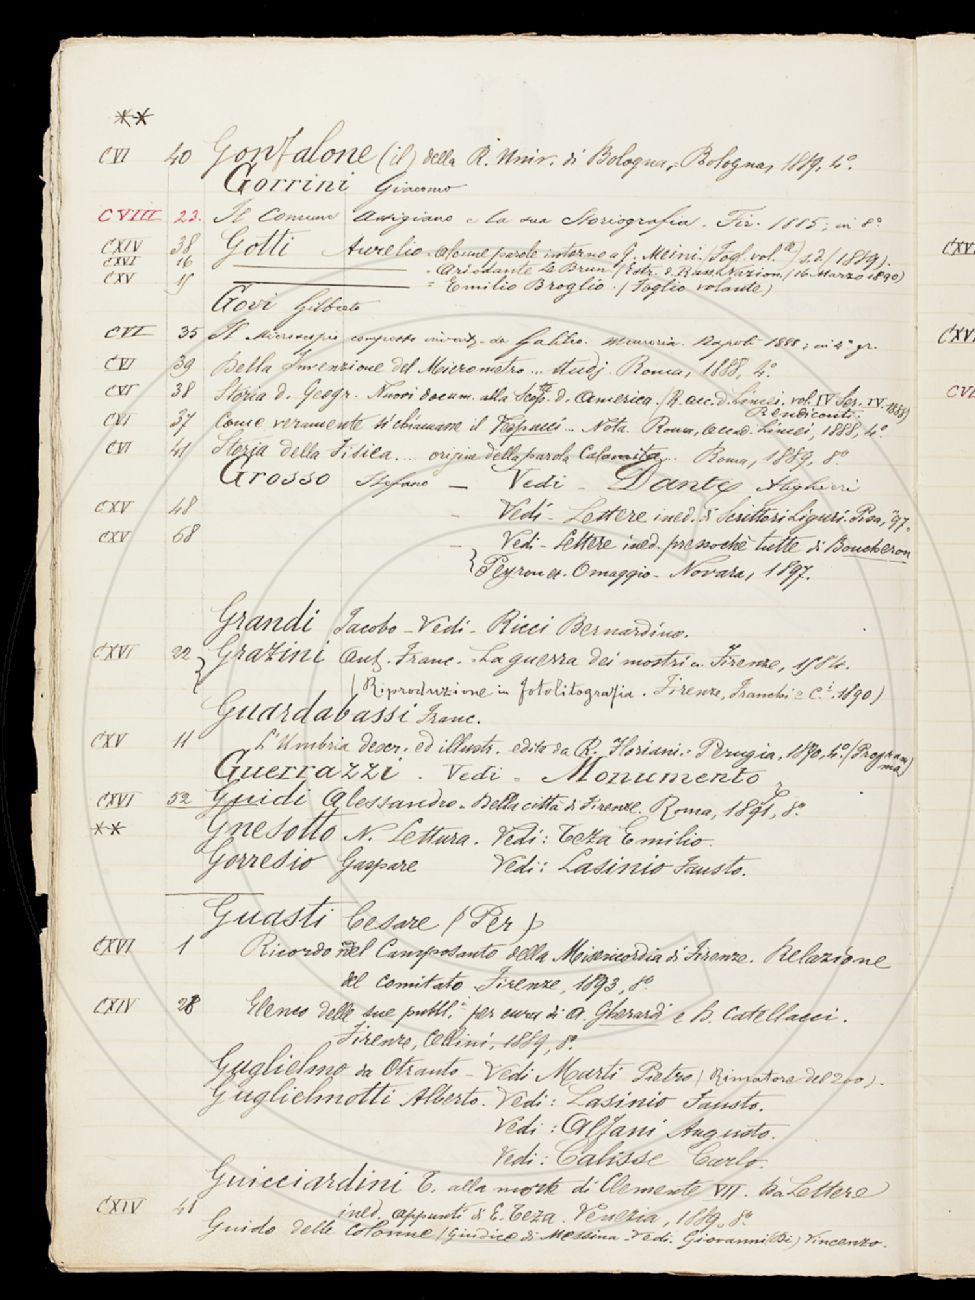 **
CVI 40 Gonfalone (il) della R. Univ. di Bologna, Bologna, 1889, 4º
Gorrini Giacomo
CVIII 23. Il Comune Astigiano e la sua Storiografia. Fir. 1885; in 8º
CXIV 38 Gotti Aurelio - Alcune parole intorno a G. Meini. (Fog. vol.) s.d. (1889).
CXVI 16 - Aristante Le Brun / Estr. d. (16 Marzo 1890)
CXV 15 = Emilio Broglio. (Foglio volante)
Govi Gilberto
CVI 35 Il Microscopio composto da Galileo. Memoria. Napoli 1888; in 4º gr.
CVI 39 Della Invenzione del Micrometro... Studj. Roma, 1888, 4º
CVI 38 Storia d. Geogr. Nuovi docum. alla Scop. d. America. (R. acc. d. Lincei. vol. IV Ser. IV. 1888)
Rendiconti.
CVI 37 Come veramente si chiamasse il Vespucci... Nota. Roma, accad. Lincei, 1888, 4º
CVI 41 Storia della Fisica.... origine della parola Calamita... Roma, 1889, 8º
Grosso Stefano — Vedi - Dante Alighieri
CXV 48 — Vedi - Lettere ined. di Scrittori Liguri. Pisa, '97.
CXV 68 — Vedi - Lettere ined. pressochè tutte di Boucheron
Peyron ec. Omaggio - Novara, 1897.
Grandi Jacobo - Vedi - Ricci Bernardino.
CXVI 22 Grazini Ant. Franc. - La guerra dei mostri - Firenze, 1584.
(Riproduzione in fotolitografia. Firenze, Franchi e C.i 1890)
Guardabassi Franc.
CXV 11 L'Umbria descr. ed illustr. edito da R. Floriani - Perugia, 1870, 4º (Programma)
Guerrazzi. Vedi - Monumento
CXVI 52 Guidi Alessandro - Della città di Firenze. Roma, 1891, 8º
** Gnesotto N. Lettura. Vedi: Teza Emilio.
Gorresio Gaspare Vedi: Lasinio Fausto.
Guasti Cesare (Per)
CXVI 1 Ricordo nel Camposanto della Misericordia di Firenze. Relazione
del comitato - Firenze, 1893, 8º
CXIV 28 Elenco delle sue pubbl. per cura di A. Gherardi e D. Catellacci.
Firenze, Cellini, 1889, 8º
Guglielmo da Otranto - Vedi Marti Pietro (Rimatore del 200).
Guglielmotti Alberto. Vedi: Lasinio Fausto.
Vedi: Alfani Augusto.
Vedi: Calisse Carlo.
Guicciardini E. alla morte di Clemente VII. Lettere
CXIV 41 ined. appunti di E. Teza. Venezia, 1889, 8º
Guido delle Colonne (Giudice di Messina - Vedi. Giovanni (Di) Vincenzo.
CXV
CXV
CVI